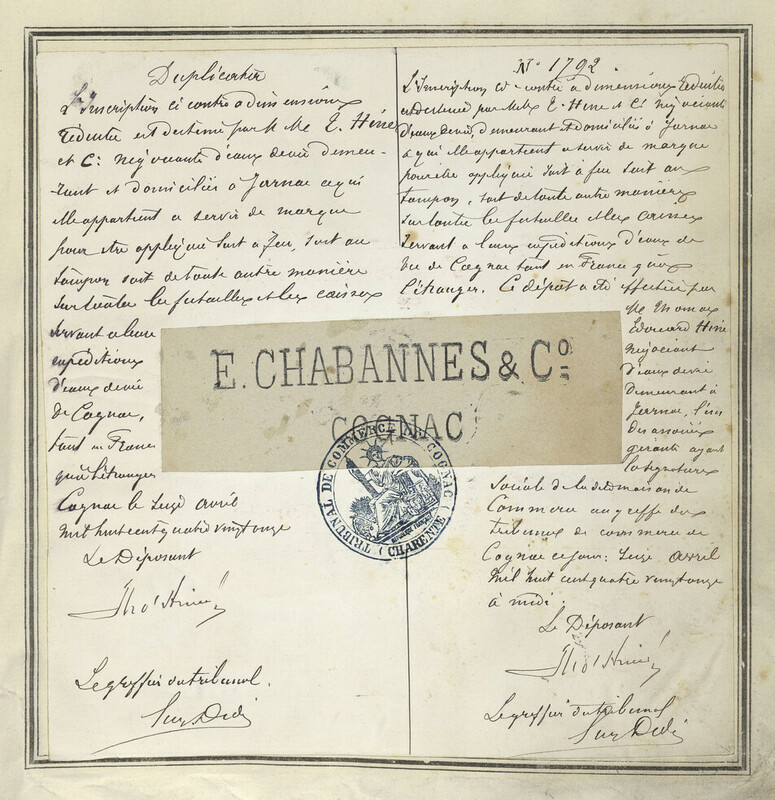 Duplicata
L'Inscription ci contre a dimensions
réduites est destiné par M Mrs E. Hine
et Cie négociants d'eaux devie demeu-
rant et domiciliés à Jarnac et qui
elle appartient a servir de marque
pour être appliqué soit a feu, soit au
tampon soit de toute autre manière
sur toutes les futailles et les caisses
servant a leurs
expéditions
d'eaux devie
de Cognac,
tant en France
qu'a l'étranger
Cognac le Seize avril
mil huit cent quatre vingt onze
Le Déposant
Thos Hine
Le greffier du tribunal.
N° 1792
L'Inscription ci-contre a dimensions réduites
est destiné par Mrs E. Hine et Cie négociants
d'eaux devie, demeurant et domiciliés à Jarnac
a qui elle appartient a servir de marque
pour être appliqué soit à feu soit au
tampon, soit de toute autre manière
sur toutes les futailles et les caisses
servant a leurs expéditions d'eaux de
vie de Cognac tant en France qu'à
l'étranger. Ce dépôt a été effectué par
Mr Thomas
Edouard Hine
négociant
d'eaux devie
demeurant à
Jarnac, l'un
des associés
gérants ayant
la signature
sociale de la de maison de
Commerce au greffe du
tribunal de commerce de
Cognac ce jour: Seize Avril
mil huit cent quatre vingt onze
à midi.
Le Déposant
Thos Hine
Le greffier du tribunal
E. CHABANNES & Co
COGNAC
TRIBUNAL DE COMMERCE DE COGNAC
(CHARENTE)